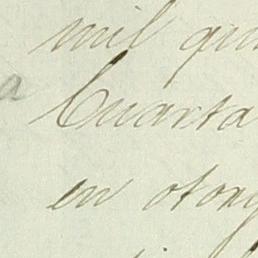 mil qui
a Cuarta
en otorg